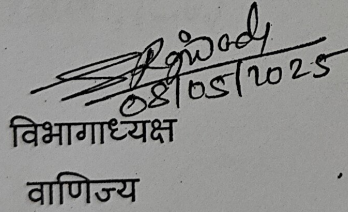 08/05/2025
विभागाध्यक्ष
वाणिज्य